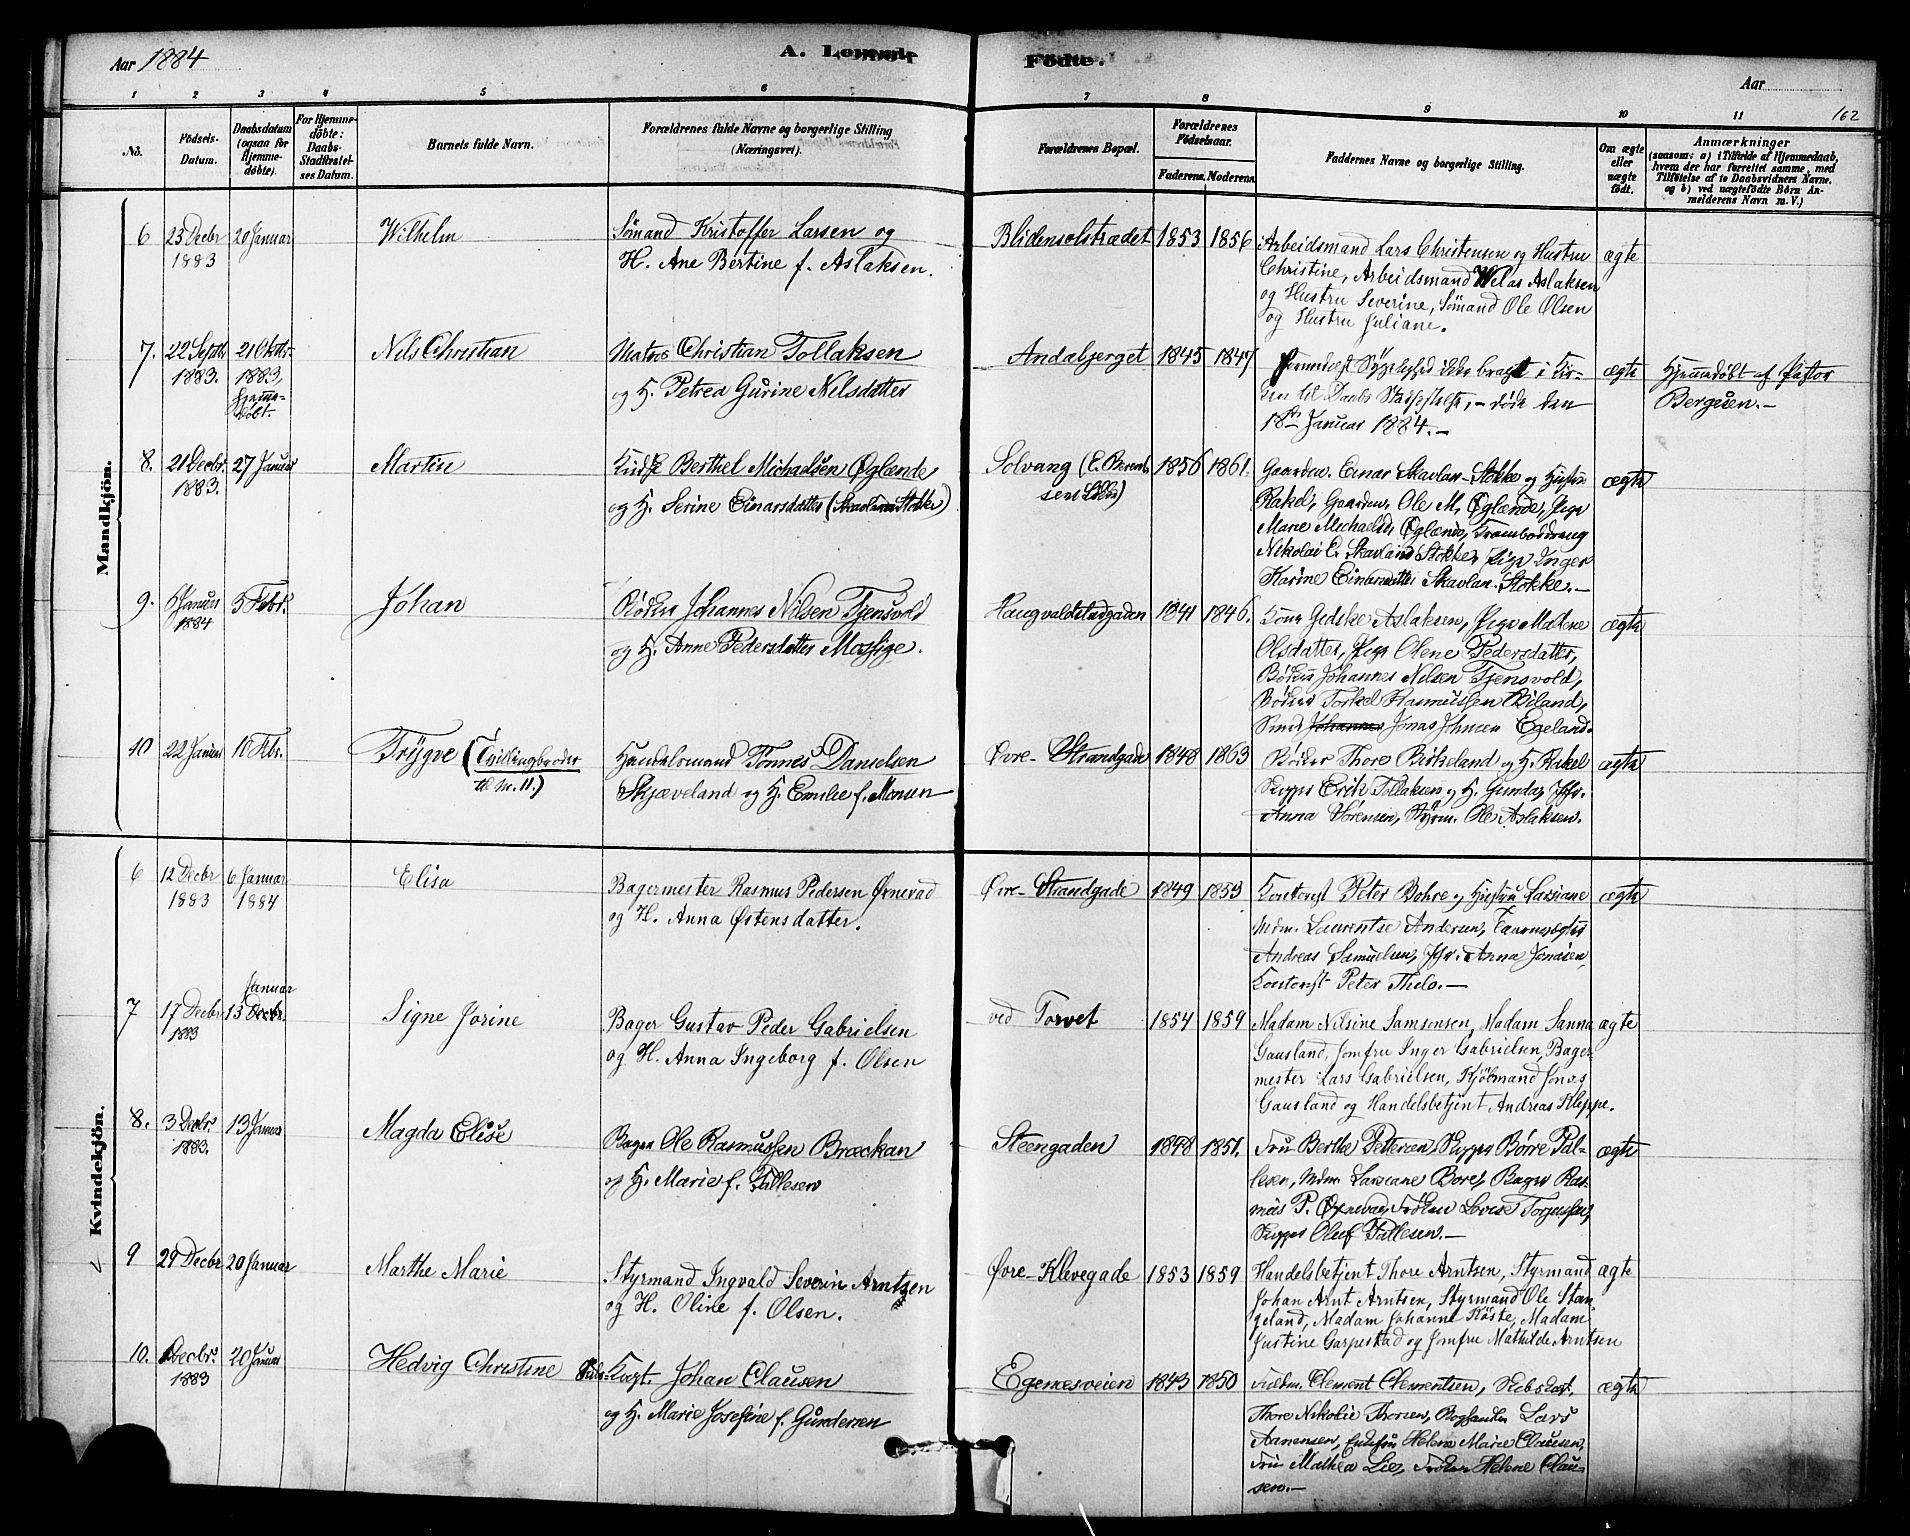 Aar 1884
A. Levende
Födte.
Aar
162
1 2 3 4 5 6 7 8 9 10 11
No.
Födsels-
Datum.
Daabsdatum
(ogsaa for
Hjemme-
döbte).
For Hjemme-
döbte:
Daabs-
Stadfæstel-
ses Datum.
Barnets fulde Navn.
Forældrenes fulde Navne og borgerlige Stilling
(Næringsvei).
Forældrenes Bopæl.
Forældrenes
Födselsaar.
Faderens. Moderens.
Faddernes Navne og borgerlige Stilling.
Om ægte
eller
uægte
födt.
Anmærkninger
(saasom: a) i Tilfælde af Hjemmedaab,
hvem der har forrettet samme, med
Tilföielse af to Daabsvidners Navne,
og b) ved uægtefödte Börn An-
melderens Navn m. V.)
Mandkjön.
6 25 Decbr 1883
20 Januar
Wilhelm
Sømand Kristoffer Larsen og
H. Ane Bertine f. Aslaksen.
Blidensolstrædet 1853 1856
Arbeidsmand Lars Christensen og Hustru
Christine, Arbeidsmand Aslaksen
og Hustru Severine, Sømand Ole Olsen
og Hustru Juliane.
ægte
7. 22 Septbr 1883.
21 Oktbr 1883, Hjemme-
døbt.
Nils Christian
Matros Christian Tollaksen
og H. Petrea Gurine Nelsdatter
Andabjerget 1845 1847
Formedelst Sygelighed ikke bragt i Kir-
ken til Daabs Stadfæstelse, – døde den
18de Januar 1884.–
ægte
Hjemmedøbt af Pastor
Bergesen.–
8. 21 Decbr. 1883.
27 Januar
Martin
Berthel Michaelsen Øglænde
og H. Serine Einarsdatter (Skavlan Stokke)
Solvang 1856 1861.
Gaardm. Einar Skavlan-Stokke og Hustru
Rakel, Gaardm. Ole M. Øglænde, Pige
Marie Michaelsd. Øglænde, Kramboddreng
Nikolai E. Skavland Stokke, Pige Inger
Karine Einarsdatter Skavlan-Stokke.–
ægte
9. 5 Januar 1884
3 Febr.
Johan
Bødker Johannes Nilsen Tjensvold
og H. Anne Pedersdatter Mossige.
Haugvaldstadgaden 1841 1846.
Kone Gedske Aslaksen, Pige Malene
Olsdatter, Pige Olene Pedersdatter,
Bødker Johannes Nilsen Tjensvold,
Bødker Torkel Rasmussen Øiland,
Smed Johannes Jonas Egeland.
ægte
10 22 Januar
10 Febr.
Trygve (Tvillingbroder
til Nr. 11.)
Handelsmand Tønnes Danielsen
Skjæveland og H. Emilie f. Monsen
Øvre-Strandgade 1848 1863
Bødker Thore Birkeland og H. Rakel
Skipper Erik Tollaksen og H. Gunda, Jfr.
Anna Sørensen, Styrm. Ole Aslaksen.
ægte
Kvindekjön.
6 12 Decbr 1883
6 Januar 1884
Elisa
Bagermester Rasmus Pedersen Øxnevad
og H. Anna Østensdatter.
Øvre-Strandgade 1849 1853
Kontorist Peter Bohre og Hustru Larsiane
Mdm. Laurentse Andersen,
Andreas Samuelsen, Jfr. Anna Jonasen,
Kontorist Peter Thelo.–
ægte
7 17 Decbr 1883
Januar
13 Decbr.
Signe Jorine
Bager Gustav Peder Gabrielsen
og H. Anna Ingeborg f. Olsen
ved Torvet 1854 1859
Madam Nilsine Samsonsen, Madam Sanna
Gausland, Jomfru Inger Gabrielsen, Bager-
mester Lars Gabrielsen, Kjöbmand Jonas
Gausland og Handelsbetjent Andreas Kleppe.
ægte
8. 3 Decbr. 1883.
13 Januar
Magda Elise
Bager Ole Rasmussen Bræckan
og H. Marie f. Tallesen
Steengaden 1848 1851.
Fru Bertha Pettersen, Skipper Børre Pal-
lesen, Mdm. Larsiane Bore, Bager Ras-
mus P. Øxnevad, Frøken Lovise Torjussen,
Skipper Oluf Pallesen.–
ægte
9 29 Decbr
20 Januar
Marthe Marie
Styrmand Ingvald Severin Arntzen
og H. Oline f. Olsen.
Øvre-Klevegade 1853 1859
Handelsbetjent Thore Arntsen, Styrmand
Johan Arnt Arntsen, Styrmand Ole Stan-
geland, Madam Johanne Köste, Madam
Justine Garpestad og Jomfru Mathilde Arntsen
ægte
10. Decbr. 1883
20 Januar
Hedvig Christine
Johan Clausen
og H. Marie Josefine f. Gundersen
Egenesveien 1843 1850
Clement Clementsen,
Thore Nikolie Thorsen, Boghandler Lars
Aanensen, Helene Marie Clausen,
Fru Mathea Lie, Frøken Helene Clau-
sen.–
ægte